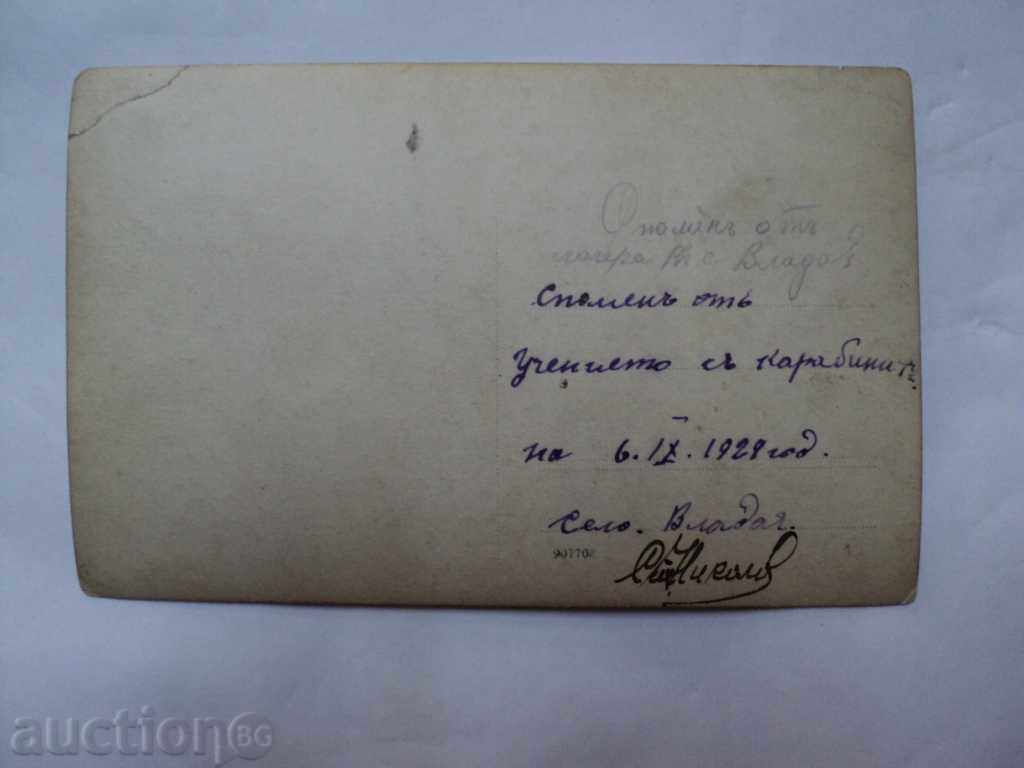 Споменъ отъ
лагера с Владая
Споменъ отъ
Учението съ карабини
на 6.IX.1929 год.
село. Владая.
907702
Ст Николов
auctionBG